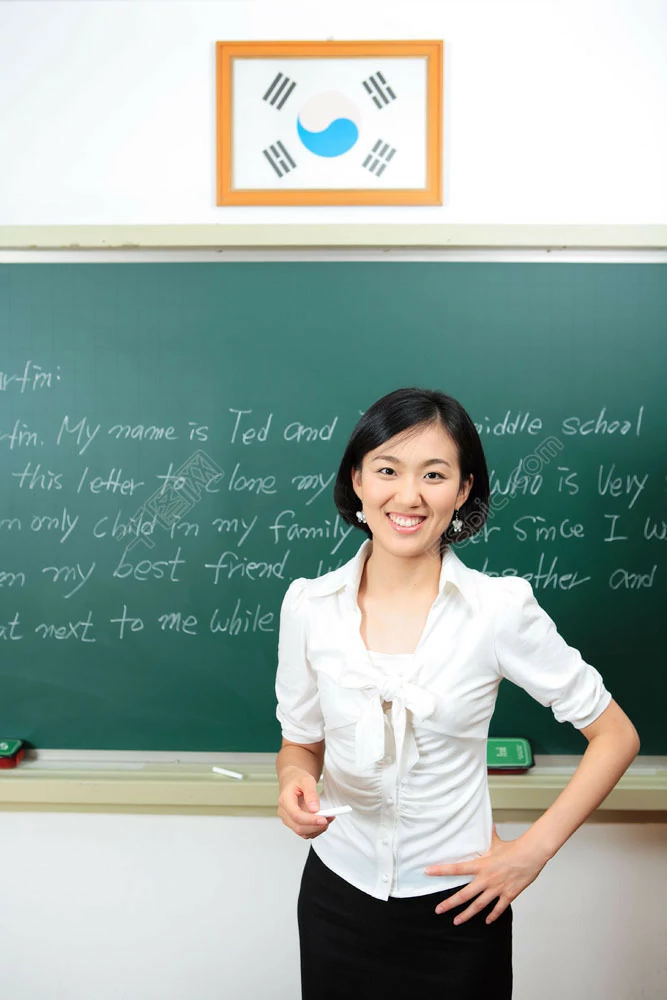 My name is Ted and middle school
this letter to clone my Who is Very
only child in my family since I
my best friend. together and
next to me while